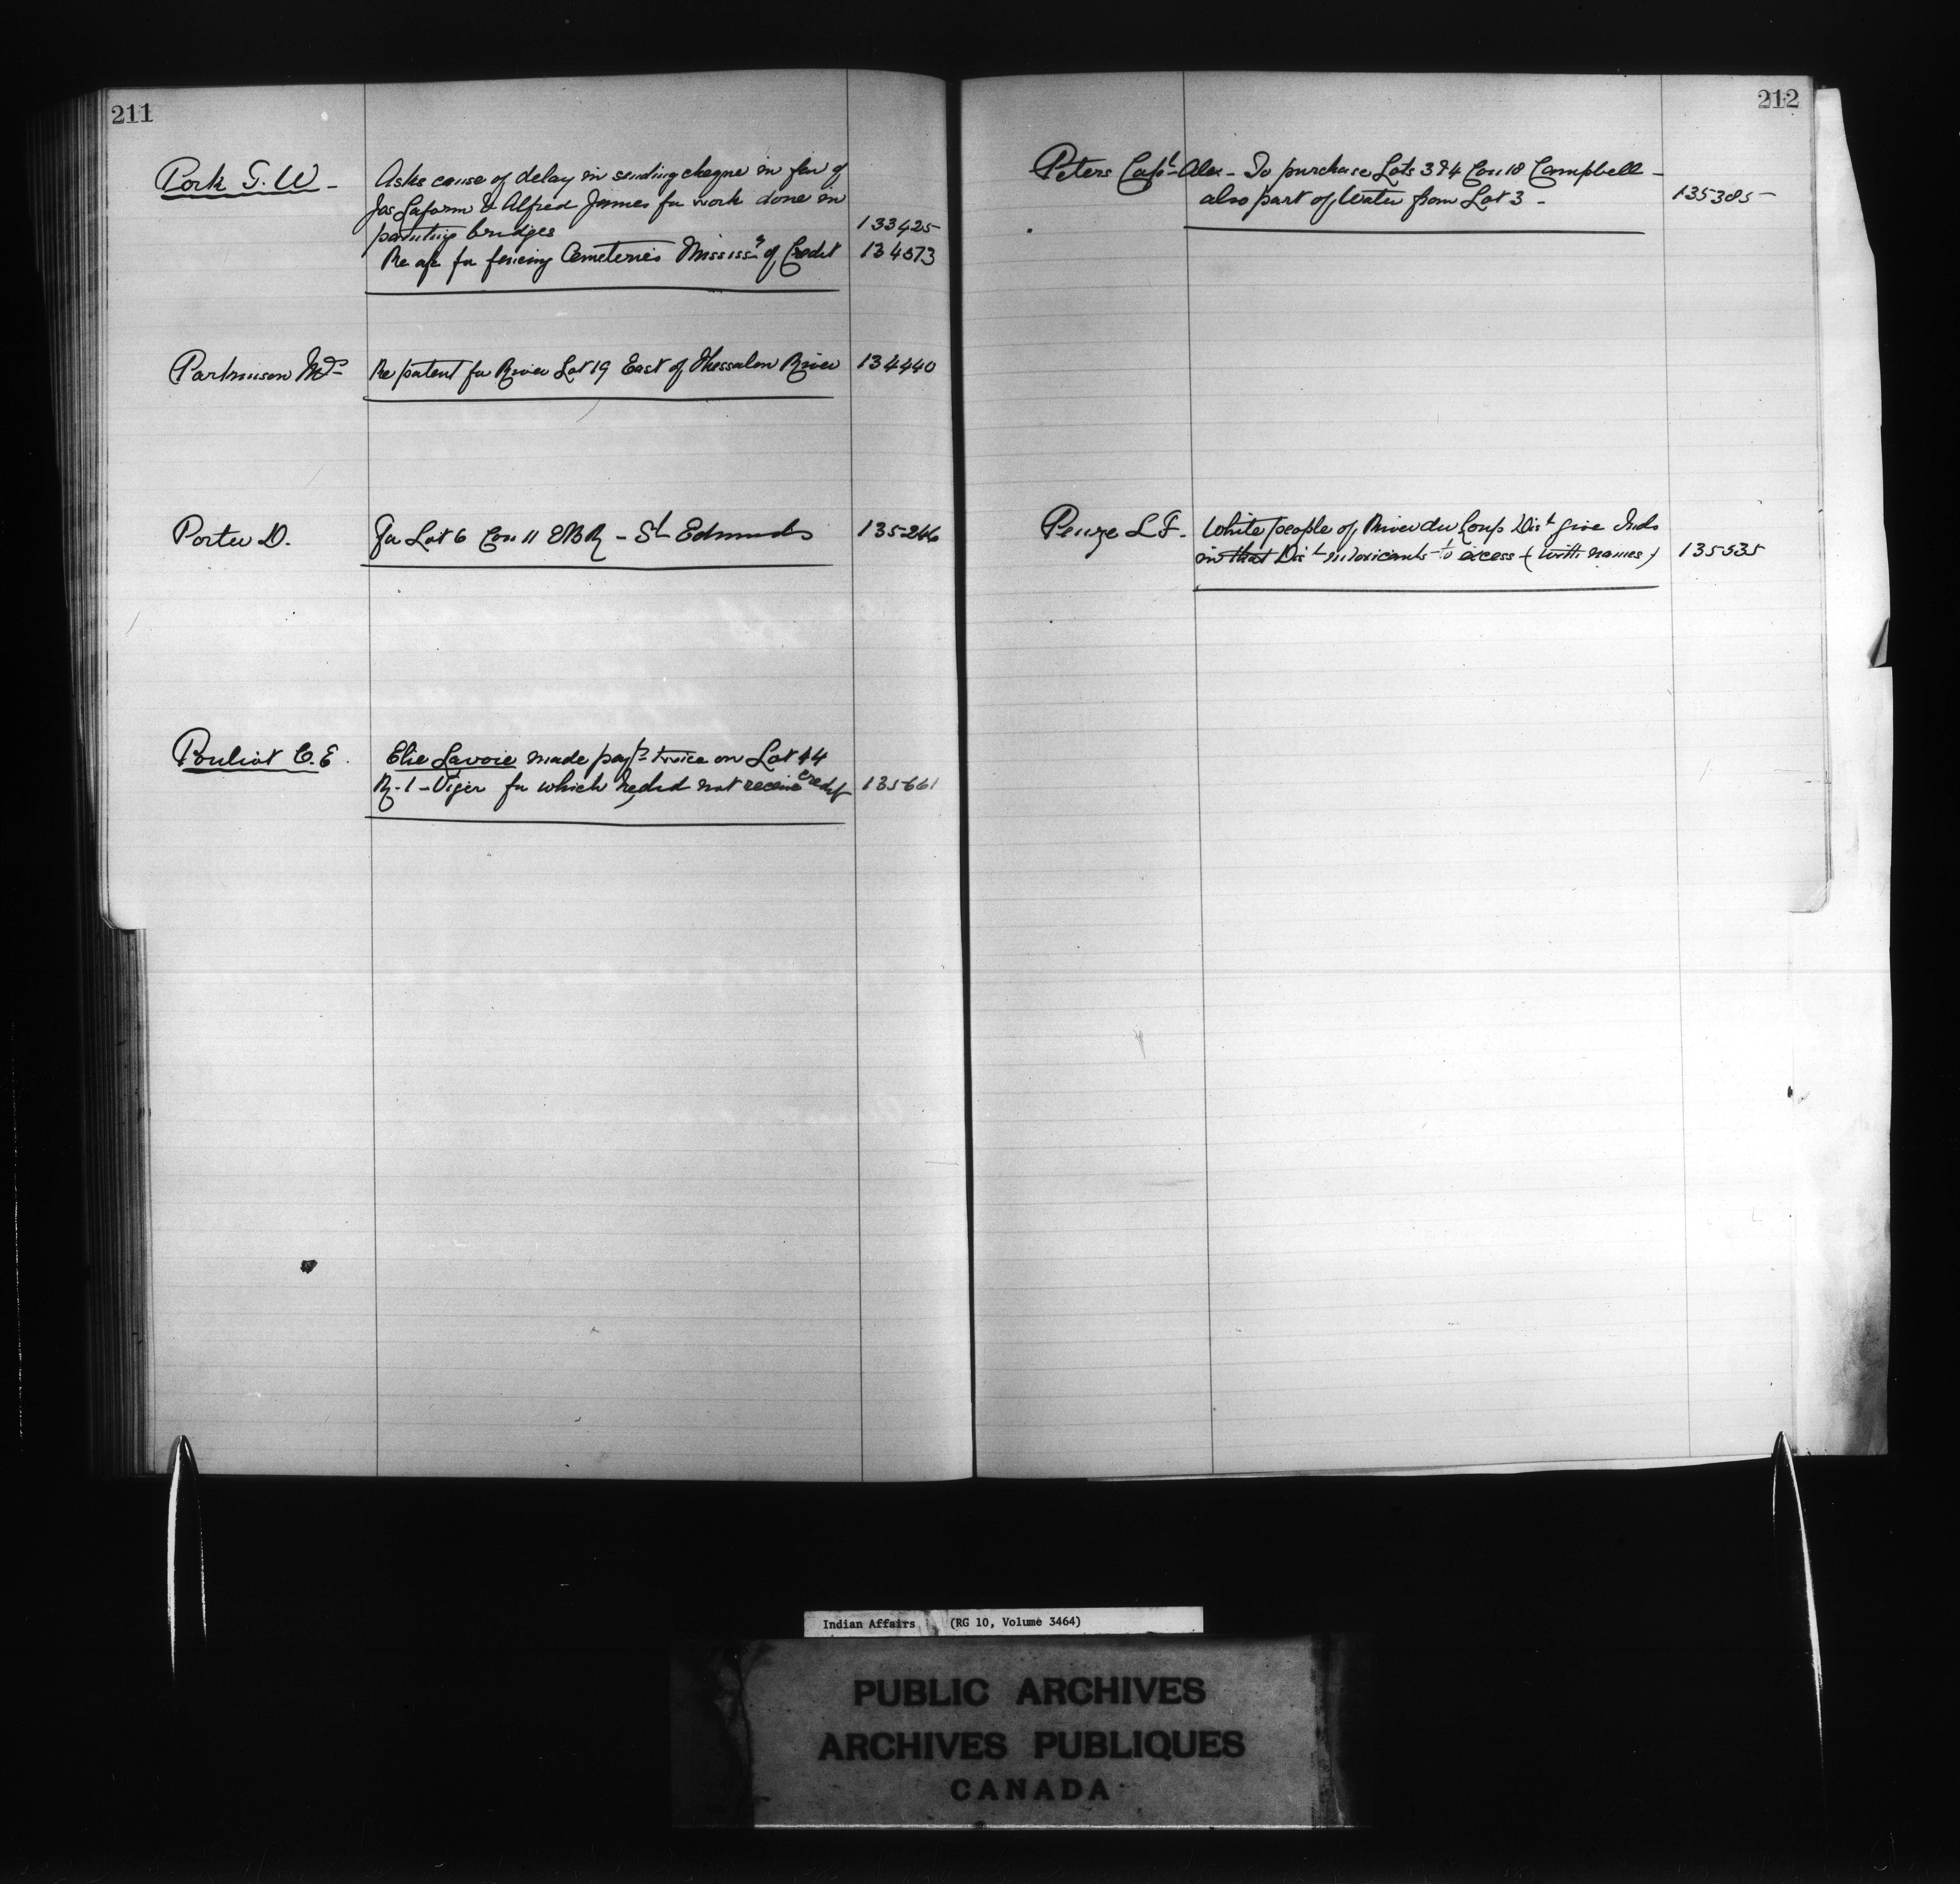 211
Pork G. W -
Asks cause of delay in sending cheque in fav of
Jas Laform & Alfred James for work done in
painting bridges
133425
Re a/c for fencing Cemeteries Mississ s of Credit
134573
Parkinson Mrs
Re patent for River Lot 19 East of Thessalon River
134440
Porter D.
For Lot 6 Con 11 EBR - St Edmunds
135266
Pouliot C. E.
Elie Lavoie made payts twice on Lot 44
R. 1 - Viger for which he did not receive credit
135661
212
Peters Capt Alex - To purchase Lots 3 & 4 Con 18 Campbell -
also part of Water from Lot 3 -
135385
L. F.
White people of River du Loup Dist give Inds
in that Dist intoxicants to excess (with names)
135535
Indian Affairs (RG 10, Volume 3464)
PUBLIC ARCHIVES
ARCHIVES PUBLIQUES
CANADA